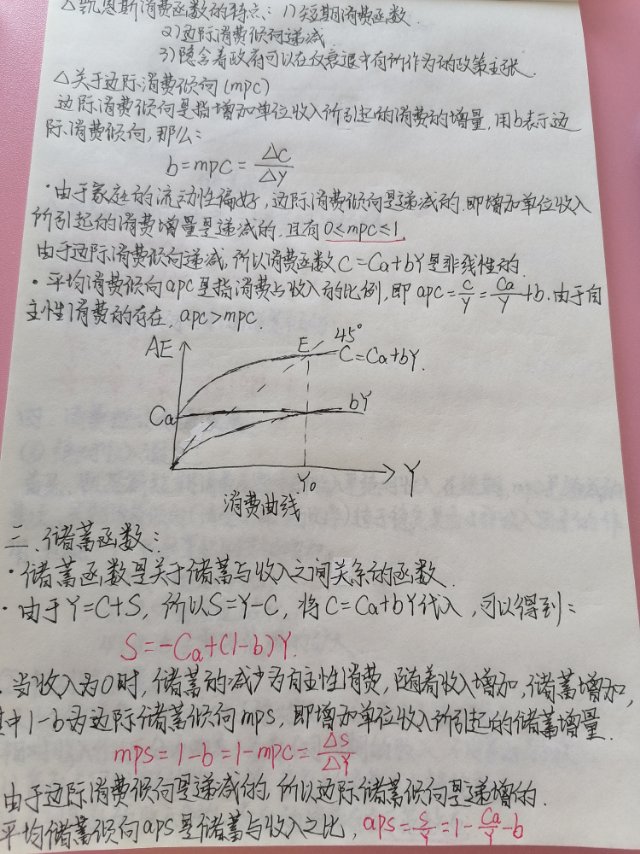 △凯恩斯消费函数的特点: 1)短期消费函数.
2)边际消费倾向递减
3)隐含着政府可以在仅衰退中有所作为的政策主张.
△关于边际消费倾向(mpc)
边际消费倾向是指增加单位收入所引起的消费的增量, 用b表示边
际消费倾向, 那么:
b=mpc=△C/△Y
·由于家庭的流动性偏好, 边际消费倾向是递减的. 即增加单位收入
所引起的消费增量是递减的. 且有0≤mpc≤1
由于边际消费倾向递减, 所以消费函数C=Ca+bY是非线性的.
·平均消费倾向apc是指消费与收入的比例, 即apc=C/Y=Ca/Y+b. 由于自
主性消费的存在. apc>mpc.
AE
E
45°
C=Ca+bY.
Ca
bY
Y₀
Y
消费曲线
三. 储蓄函数:
·储蓄函数是关于储蓄与收入之间关系的函数.
·由于Y=C+S, 所以S=Y-C, 将C=Ca+bY代入, 可以得到:
S=-Ca+(1-b)Y.
·当收入为0时, 储蓄的减少为自主性消费, 随着收入增加, 储蓄增加,
其中1-b为边际储蓄倾向mps, 即增加单位收入所引起的储蓄增量.
mps=1-b=1-mpc=△S/△Y
由于边际消费倾向是递减的, 所以边际储蓄倾向是递增的.
平均储蓄倾向aps是储蓄与收入之比, aps=S/Y=1-Ca/Y-b